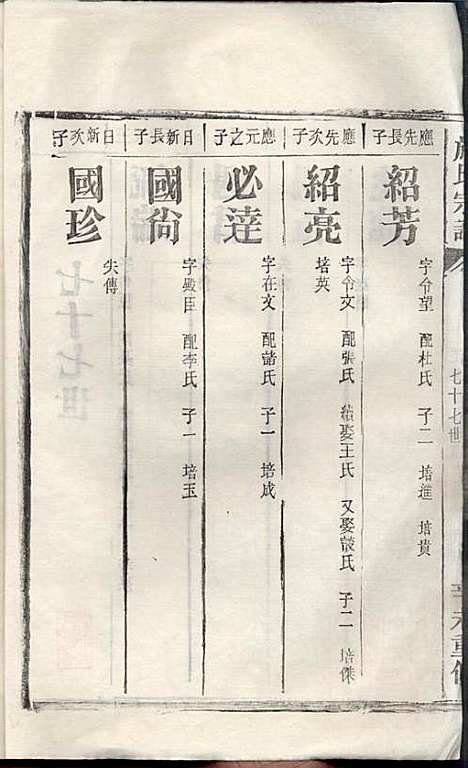 應先長子
紹芳
字令望 配杜氏 子二 培進 培貴
應先次子
紹亮
字令文 配張氏 續娶王氏 又娶韓氏 子二 培傑
培英
應元之子
必達
字在文 配諸氏 子一 培成
日新長子
國尙
字殿臣 配李氏 子一 培玉
日新次子
國珍
失傳
氏宗譜
七十七世